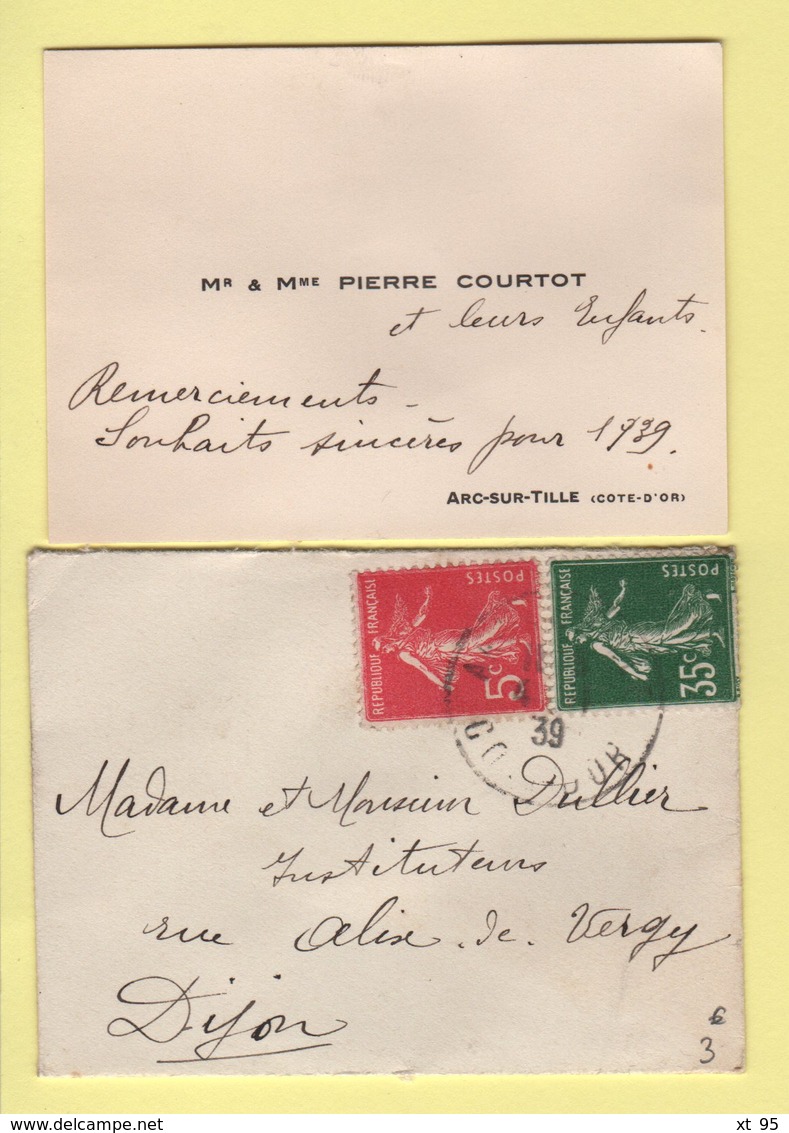 Mr & Mme PIERRE COURTOT
et leurs Enfants.
Remerciements -
Souhaits sincères pour 1939.
ARC-SUR-TILLE (COTE-D'OR)
REPUBLIQUE FRANÇAISE
POSTES
5c
REPUBLIQUE FRANÇAISE
POSTES
35c
39
Madame et Monsieur
Instituteurs
rue Alix de Vergy
Dijon
€
3
xt 95